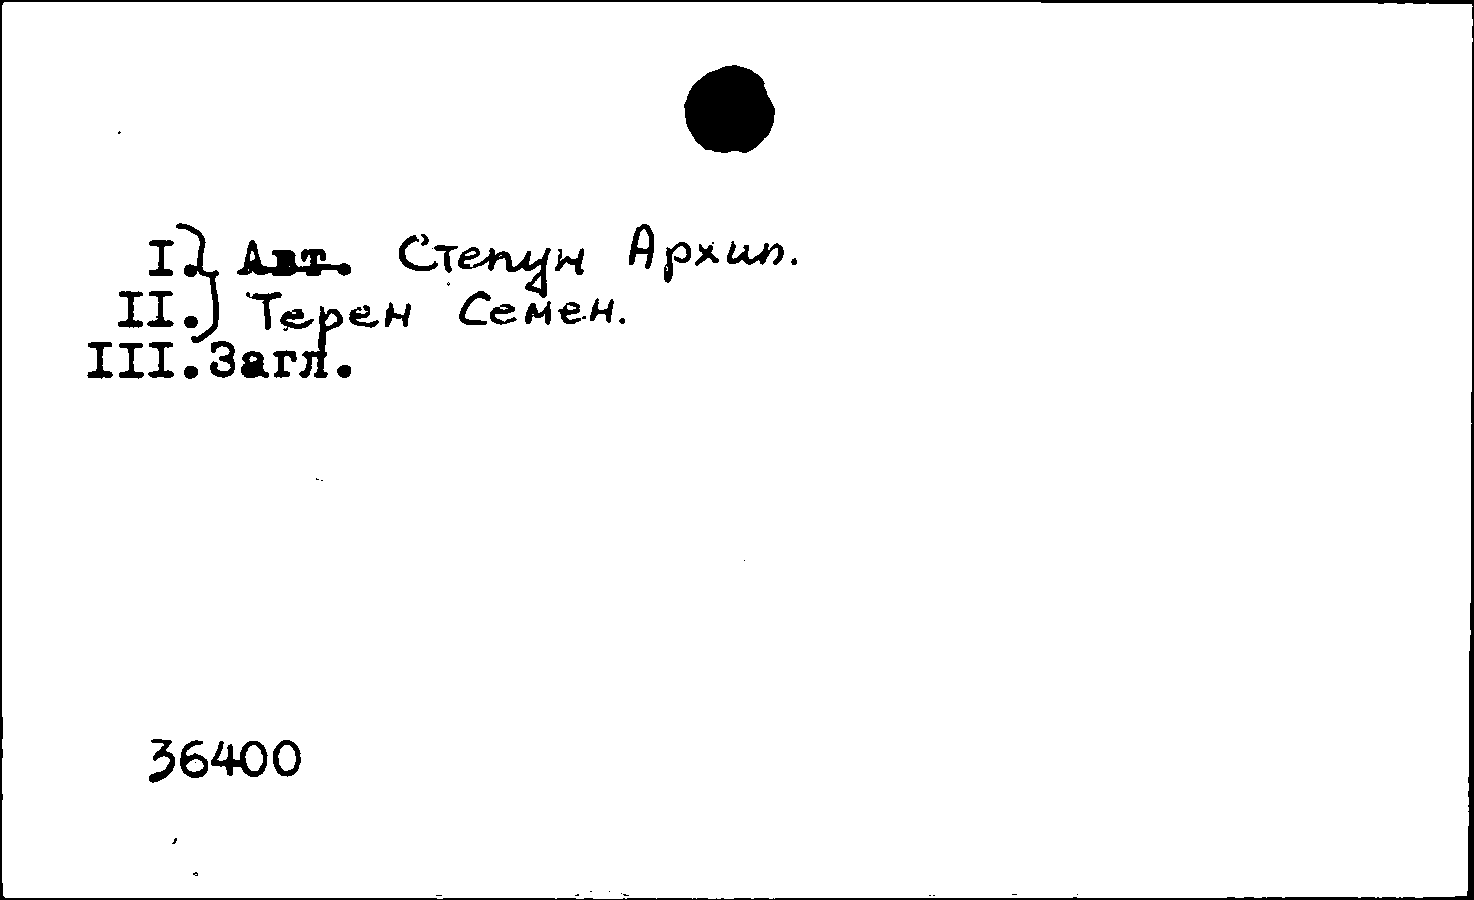 I. Авт. Степун Архип.
II. Терен Семен.
III. Загл.
36400